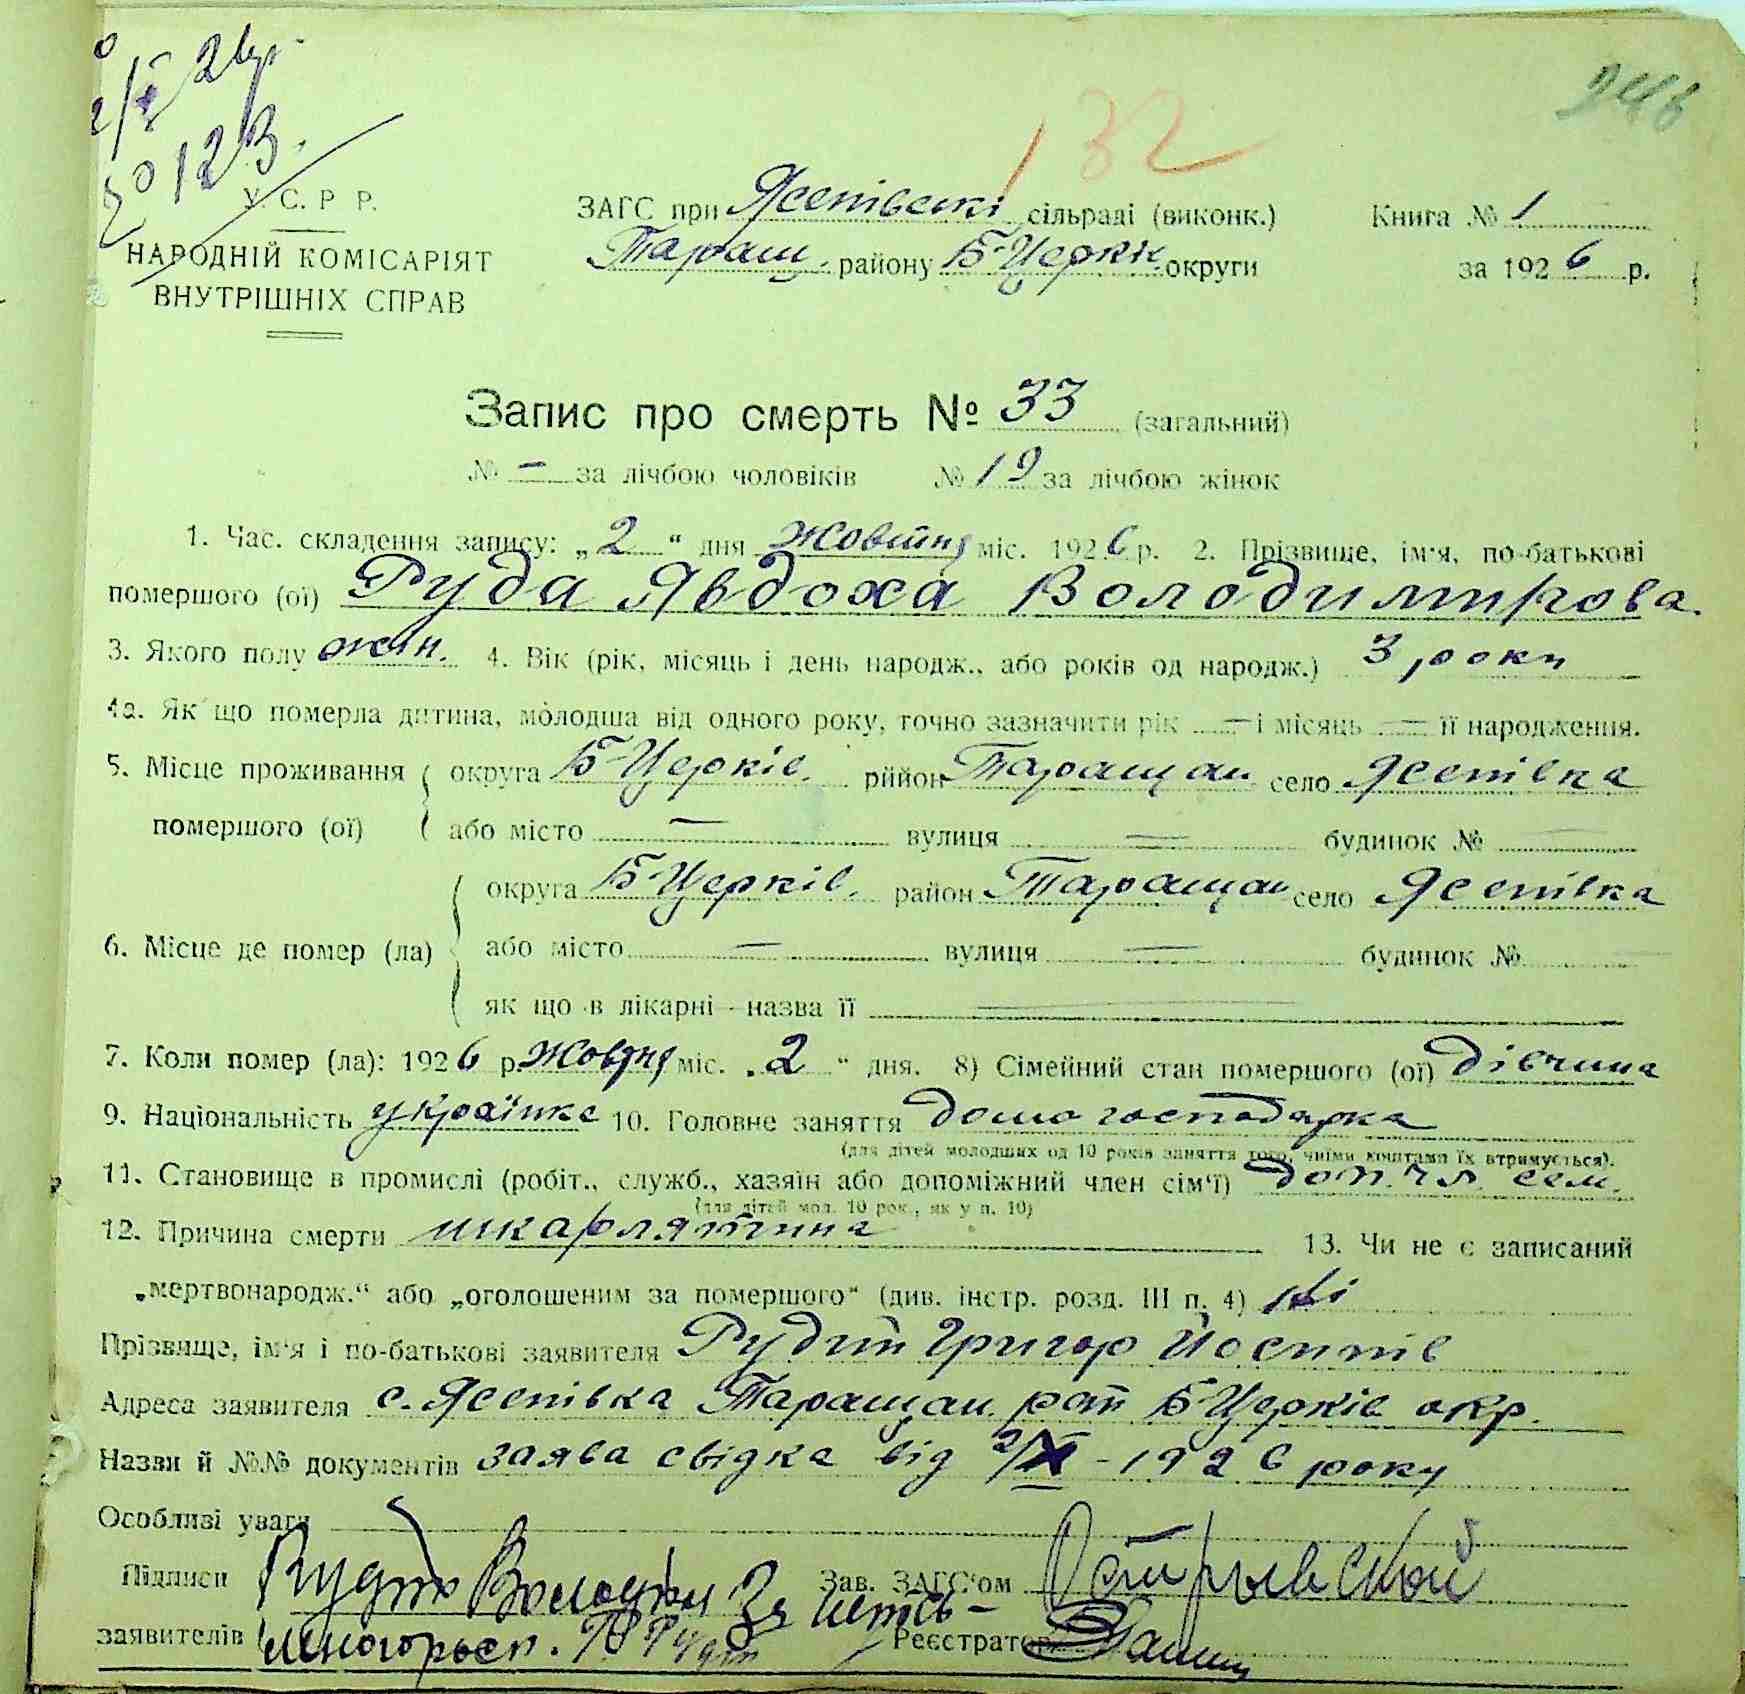 246
132
2/X 26р.
№ 123.
У. С. Р Р.
НАРОДНІЙ КОМІСАРІЯТ
ВНУТРІШНІХ СПРАВ
ЗАГС при Ясепівські сільраді (виконк.) Книга № 1
Таращ. району Б-Церків. округи за 1926 р.
Запис про смерть № 33 (загальний)
№ — за лічбою чоловіків № 19 за лічбою жінок
1. Час. складення запису: „2“ дня жовтня міс. 1926 р. 2. Прізвище, ім'я, по-батькові
помершого (ої) Руда Явдоха Володимирова.
3. Якого полу жін. 4. Вік (рік, місяць і день народж., або років од народж.) 3 роки
4а. Як що померла дитина, молодша від одного року, точно зазначити рік — і місяць — її народження.
5. Місце проживання округа Б-Церків. район Таращан. село Ясепівка
помершого (ої) або місто — вулиця — будинок №
округа Б-Церків. район Таращан село Ясепівка
6. Місце де помер (ла) або місто — вулиця — будинок №
як що в лікарні - назва її —
7. Коли помер (ла): 1926 р. жовтня міс. „2“ дня. 8) Сімейний стан помершого (ої) дівчина
9. Національність українка 10. Головне заняття домогосподарка
(для дітей молодших од 10 років заняття того, чиїми коштами їх втримується).
11. Становище в промислі (робіт., служб., хазяїн або допоміжний член сім'ї) доп. чл. сем.
(для дітей мол. 10 рок., як у п. 10)
12. Причина смерти шкарлятина 13. Чи не є записаний
„мертвонародж.“ або „оголошеним за помершого“ (див. інстр. розд. III п. 4) ні
Прізвище, ім'я і по-батькові заявителя Рудий Григор Йосипів
Адреса заявителя с. Ясепівка Таращан. рай Б-Церків окр.
Назви й №№ документів заява свідка від 2/X - 1926 року
Особливі уваги
Підписи Зав. ЗАГС'ом
заявителів Реєстратор